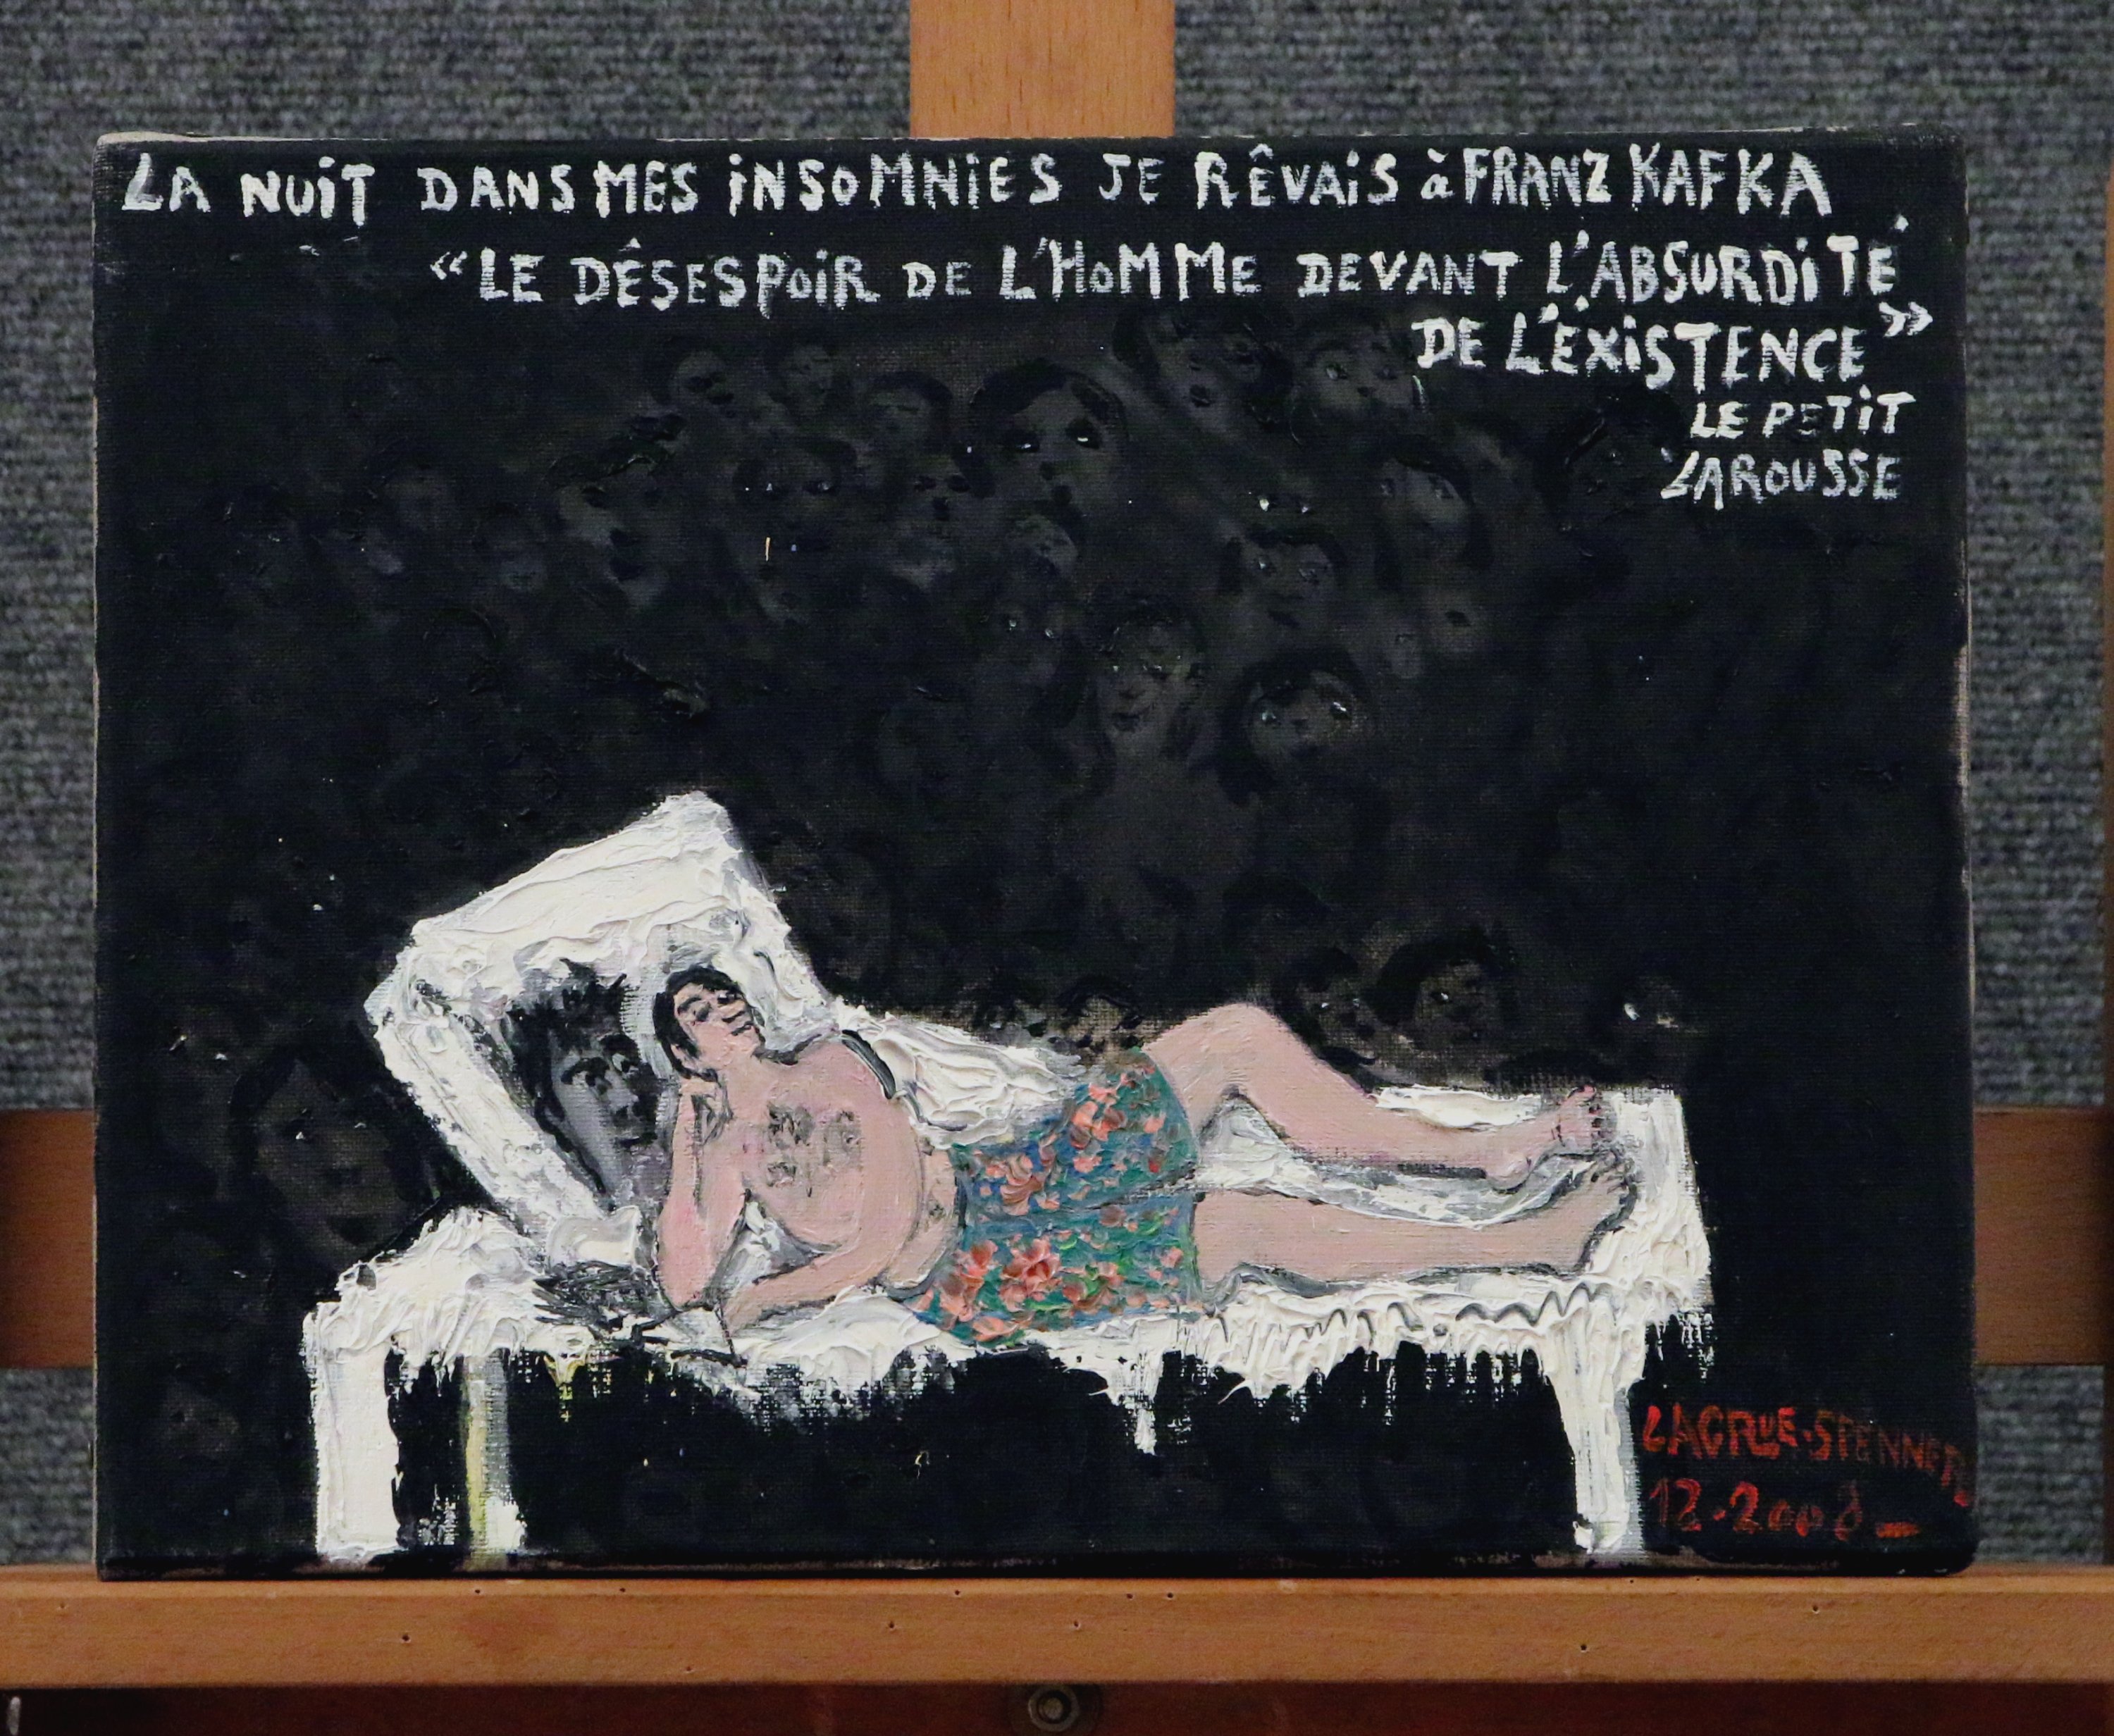 LA NUiT DANS MES iNSOMNiES JE RÊVAiS à FRANZ KAFKA
“LE DÉSESPOiR DE L'HOMME DEVANT L'ABSURDiTÉ
DE L'ÉXiSTENCE”
LE PETiT
LAROUSSE
12-2008